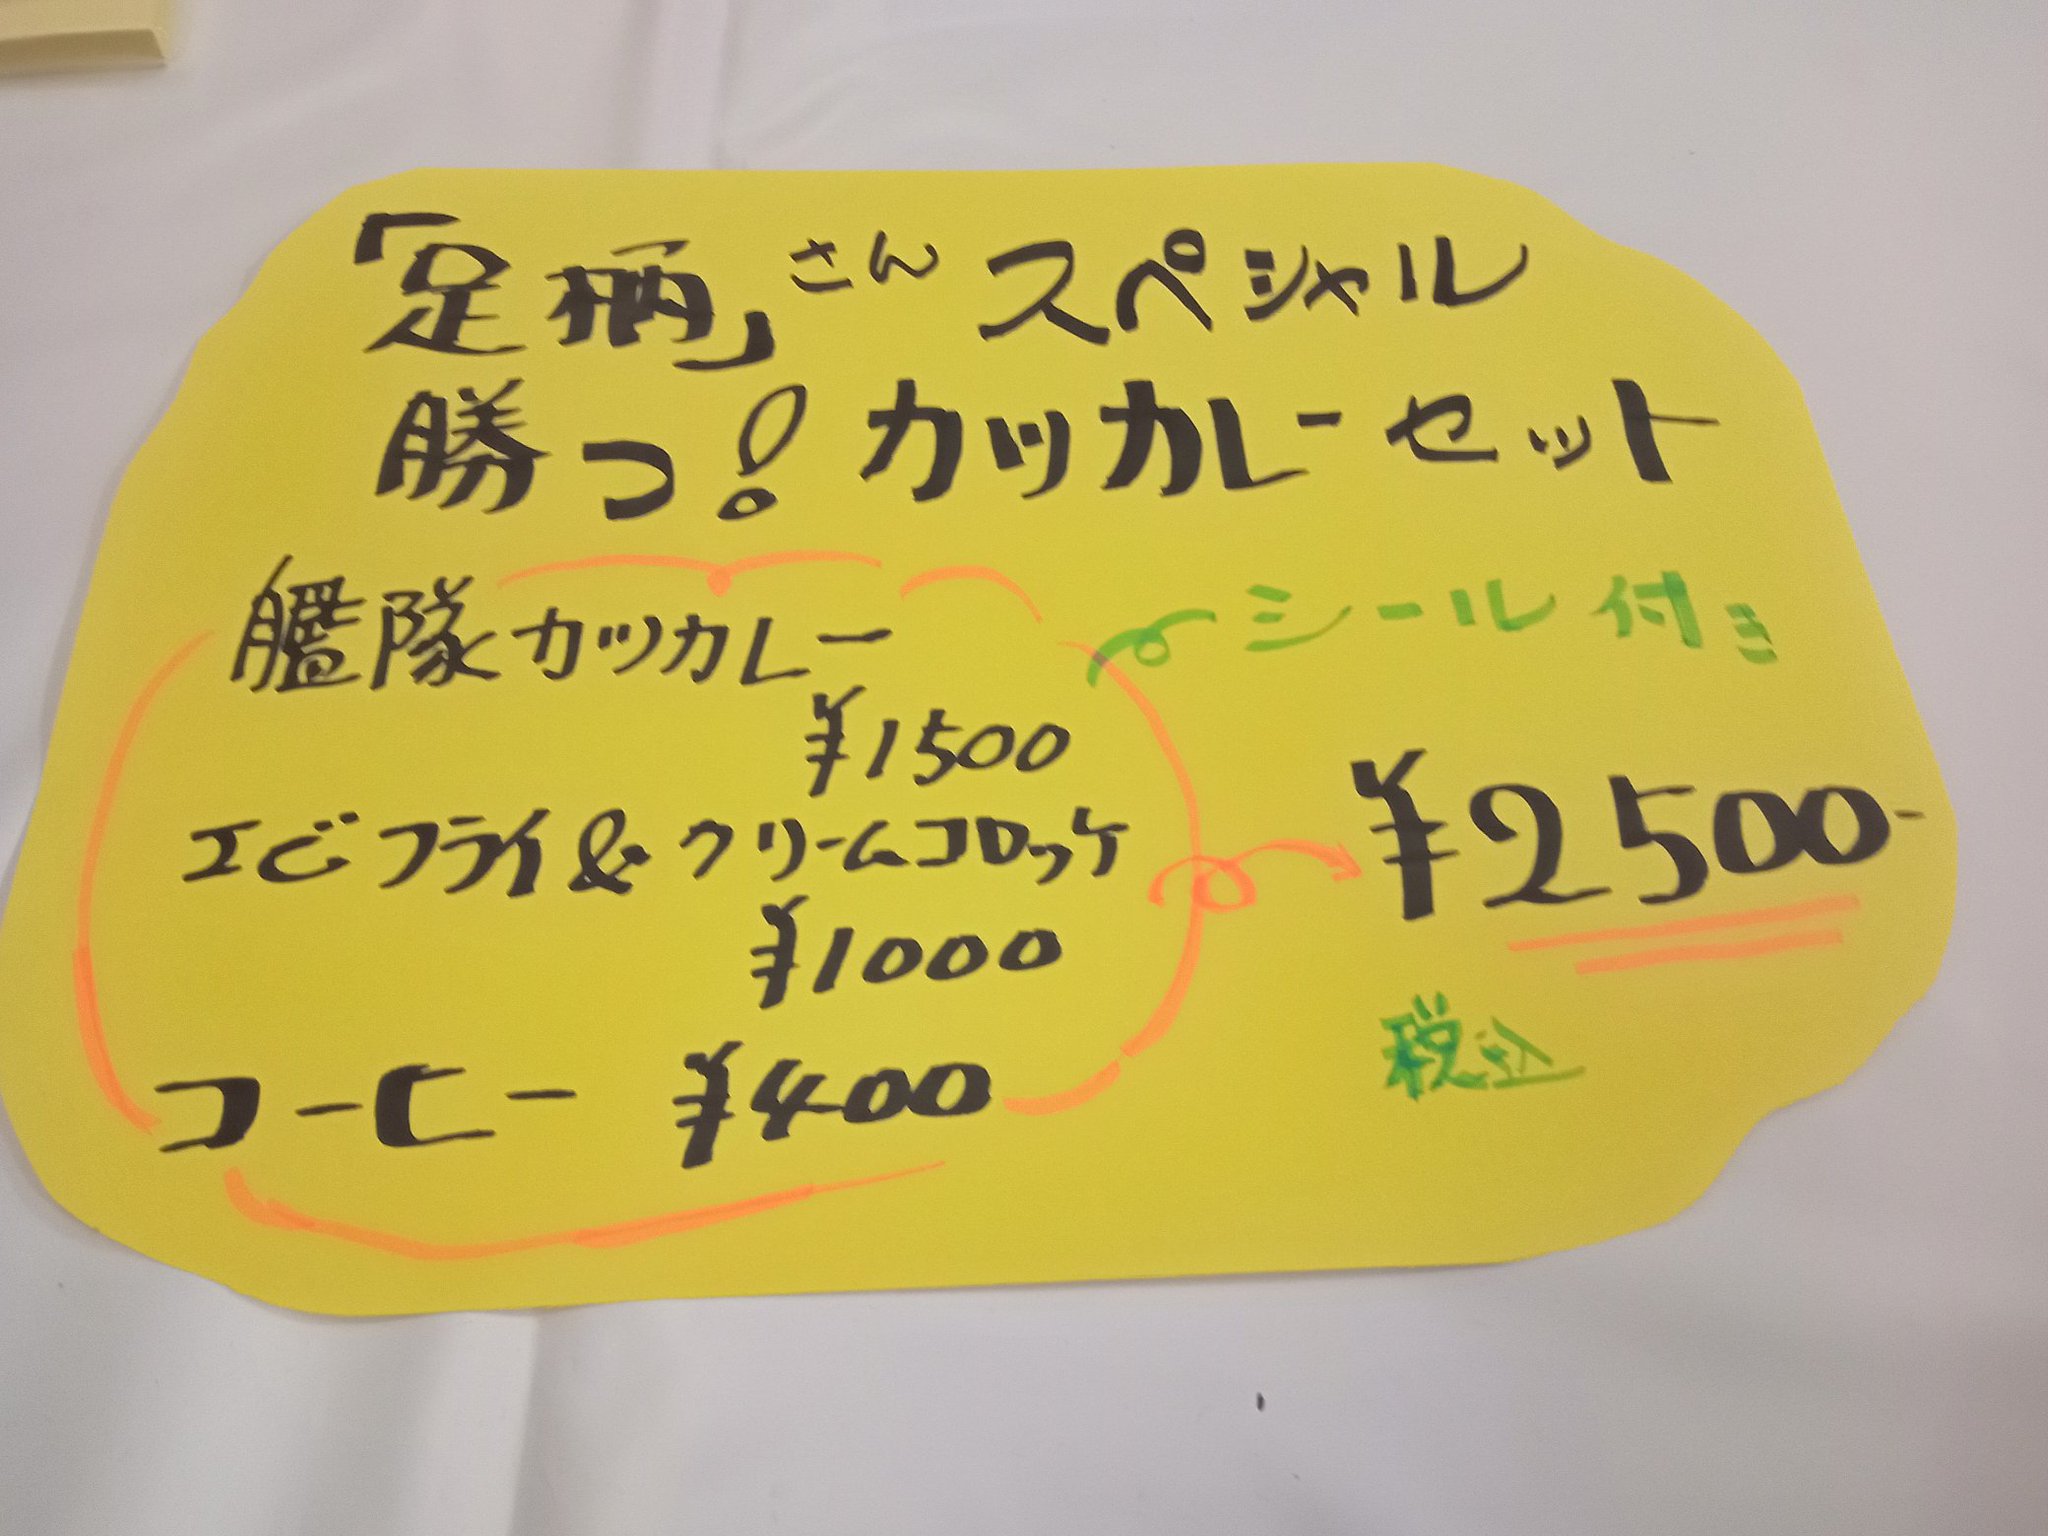 「足柄」さんスペシャル
勝つ!カツカレーセット
艦隊カツカレー
シール付き
¥1500
エビフライ&クリームコロッケ
¥1000
¥2500-
コーヒー ¥400
税込